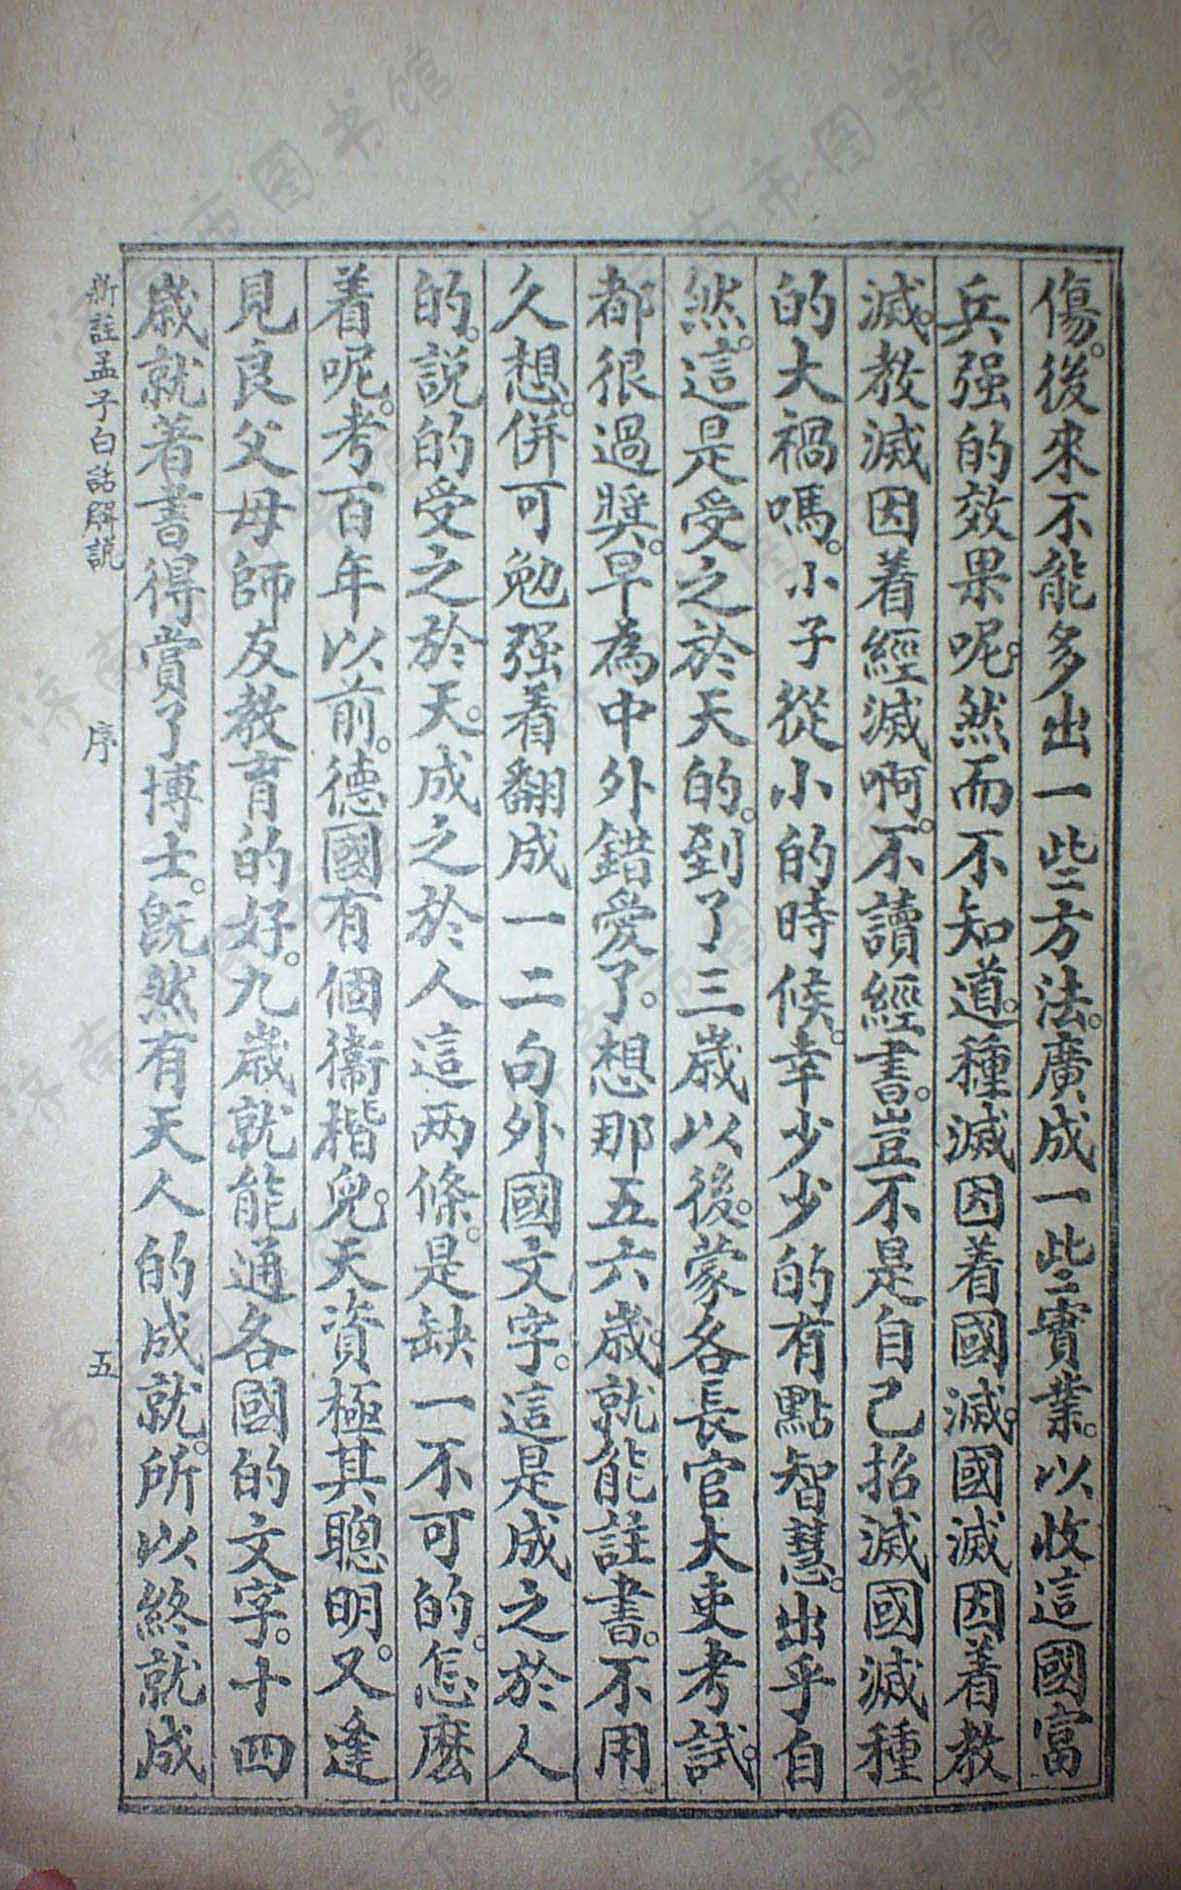 傷。後來不能多出一些方法。廣成一些實業。以收這國富
兵强的效果呢。然而不知道。種滅因着國滅。國滅因着教
滅。教滅因着經滅啊。不讀經書。豈不是自己招滅國滅種
的大禍嗎。小子從小的時候。幸少少的有點智慧。出乎自
然。這是受之於天的。到了三歲以後。蒙各長官大吏考試。
都很過獎。早為中外錯愛了。想那五六歲。就能註書。不用
久想。併可勉强着翻成一二句外國文字。這是成之於人
的。說的受之於天。成之於人這两條。是缺一不可的。怎麽
着呢。考百年以前。德國有個衞楷兒。天資極其聰明。又逢
見良父母師友教育的好。九歲就能通各國的文字。十四
歲就著書得賞了博士。旣然有天人的成就。所以終就成
新註孟子白話解説
序
五
济南市图书馆